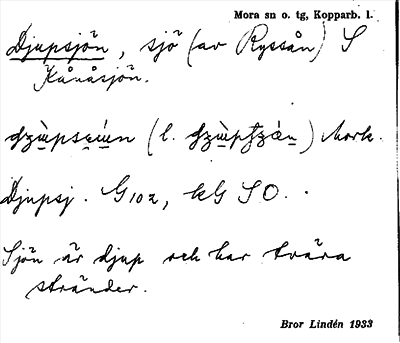 Mora sn o. tg, Kopparb. l.
Djupsjön, sjö (av Ryssån) S
Kånåsjön.
(l. ) Mork.
Djupsj. G102, kG SO.
Sjön är djup och har tvära
stränder.
Bror Lindén 1933